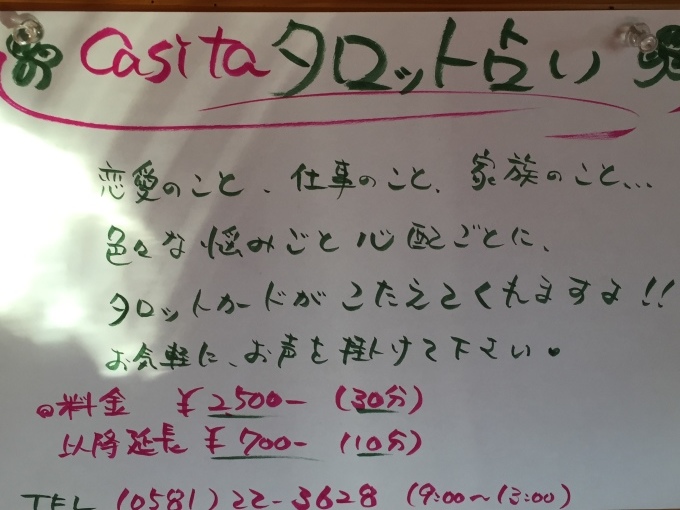 Casitaタロット占い
恋愛のこと、仕事のこと、家族のこと…
色々な悩みごと心配ごとに、
タロットカードがこたえてくれますよ!!
お気軽に、お声を掛けて下さい。
◎料金 ¥2,500- (30分)
以降延長 ¥700- (10分)
TEL (0581) 22-3628 (9:00~13:00)